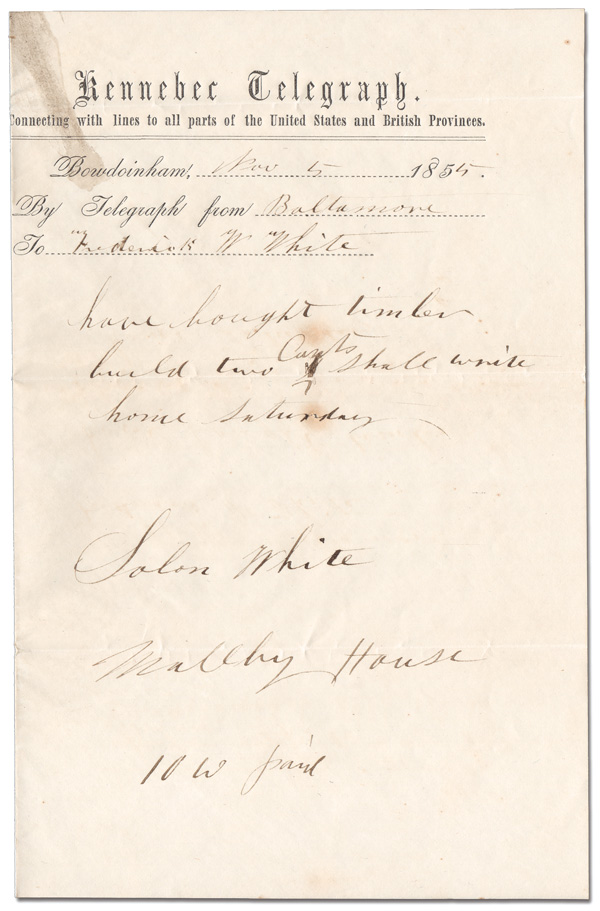 Kennebec Telegraph.
Connecting with lines to all parts of the United States and British Provinces.
Bowdoinham, Nov 5 1855.
By Telegraph from Baltamore
To Frederick W White
have bought timber
build two shall write
home saturday
Solon White
Maltby House
10 W paid